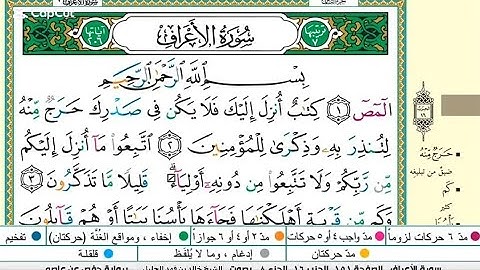 CapCut
ترتيبها ٧
سُورَةُ الأَعْرَافِ
آياتها ٢٠٦
بِسْمِ اللَّهِ الرَّحْمَٰنِ الرَّحِيمِ
الٓمٓصٓ ۝١ كِتَٰبٌ أُنزِلَ إِلَيْكَ فَلَا يَكُن فِى صَدْرِكَ حَرَجٌ مِّنْهُ
لِتُنذِرَ بِهِۦ وَذِكْرَىٰ لِلْمُؤْمِنِينَ ۝٢ ٱتَّبِعُوا۟ مَآ أُنزِلَ إِلَيْكُم
مِّن رَّبِّكُمْ وَلَا تَتَّبِعُوا۟ مِن دُونِهِۦٓ أَوْلِيَآءَ ۗ قَلِيلًا مَّا تَذَكَّرُونَ ۝٣
وَكَم مِّن قَرْيَةٍ أَهْلَكْنَٰهَا فَجَآءَهَا بَأْسُنَا بَيَٰتًا أَوْ هُمْ قَآئِلُونَ
حَرَجٌ مِّنْهُ
ضيق من تبليغه
كَم
مدّ ٦ حركات لزوماً
مدّ واجب ٤ أو ٥ حركات
مدّ ٢ أو ٤ أو ٦ جوازاً
إخفاء، ومواقع الغُنَّة (حركتان)
تفخيم
مدّ حركتان
إدغام، وما لا يُلفَظ
قلقلة